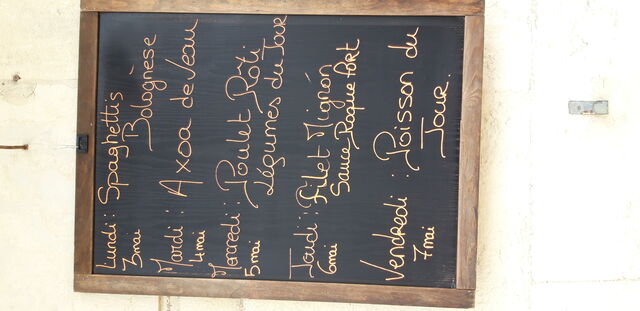 Lundi : Spaghettis
3 mai Bolognèse
Mardi : Axoa de Veau
4 mai
Mercredi : Poulet Rôti
5 mai Légumes du Jour
Jeudi : Filet Mignon
6 mai Sauce Roquefort
Vendredi : Poisson du
7 mai Jour.